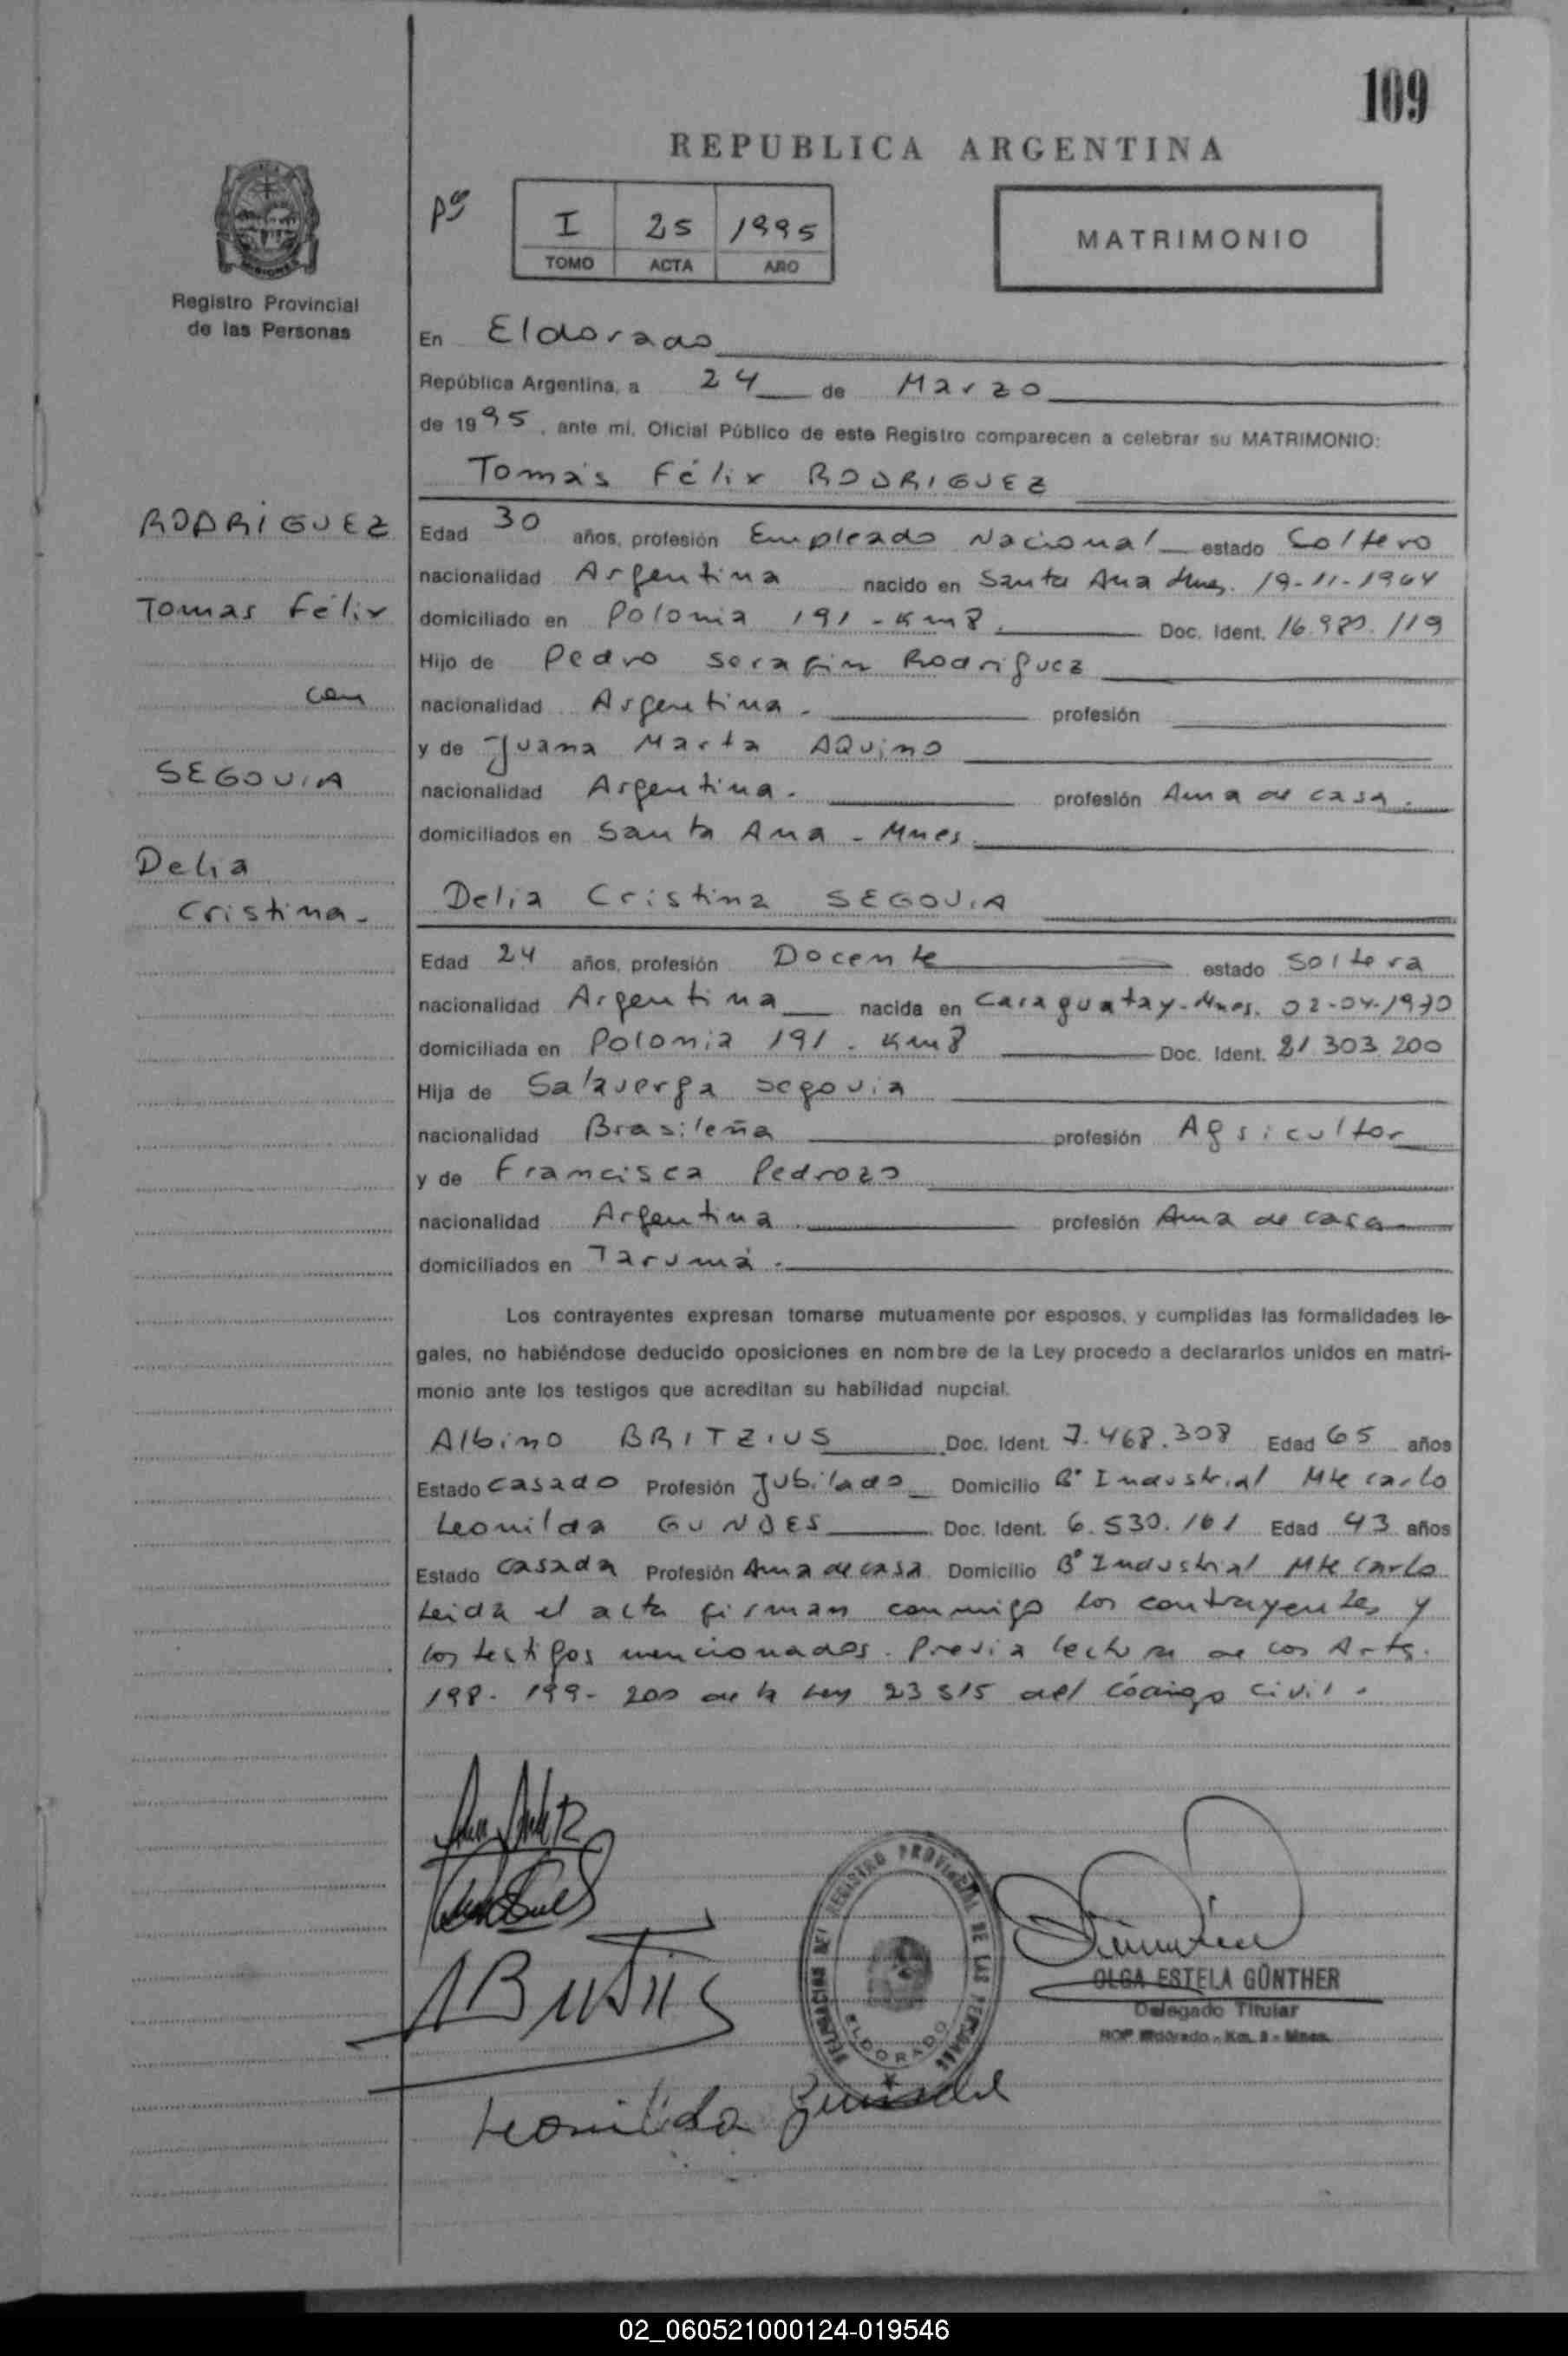 109
REPUBLICA ARGENTINA
Pº
I 25 1995
TOMO ACTA AÑO
MATRIMONIO
MISIONES
Registro Provincial
de las Personas
RODRIGUEZ
Tomas Félix
con
SEGOVIA
Delia
Cristina-
En Eldorado
República Argentina, a 24 de Marzo
de 1995, ante mí, Oficial Público de este Registro comparecen a celebrar su MATRIMONIO:
Tomás Félix RODRIGUEZ
Edad 30 años, profesión Empleado Nacional estado Soltero
nacionalidad Argentina nacido en Santa Ana Mnes. 19-11-1964
domiciliado en Polonia 191 - Km8. Doc. Ident. 16.980.119
Hijo de Pedro Serafin Rodriguez
nacionalidad Argentina. profesión
y de Juana Marta AQuino
nacionalidad Argentina. profesión Ama de casa.
domiciliados en Santa Ana - Mnes.
Delia Cristina SEGOVIA
Edad 24 años, profesión Docente estado Soltera
nacionalidad Argentina nacida en Caraguatay-Mnes. 02-04-1970
domiciliada en Polonia 191. Km8 Doc. Ident. 21.303.200
Hija de Salaverga Segovia
nacionalidad Brasileña profesión Agricultor
y de Francisca Pedrozo
nacionalidad Argentina profesión Ama de casa
domiciliados en Tarumá.
Los contrayentes expresan tomarse mutuamente por esposos, y cumplidas las formalidades le-
gales, no habiéndose deducido oposiciones en nombre de la Ley procedo a declararlos unidos en matri-
monio ante los testigos que acreditan su habilidad nupcial.
Albino BRITZIUS Doc. Ident. 7.468.308 Edad 65 años
Estado Casado Profesión Jubilado Domicilio Bº Industrial Mte Carlo
Leonilda GUNDES Doc. Ident. 6.530.161 Edad 43 años
Estado Casada Profesión Ama de casa Domicilio Bº Industrial Mte Carlo
Leida el acta firman conmigo los contrayentes y
los testigos mencionados. Previa lectura de los Arts.
198- 199- 200 de la Ley 23515 del Código Civil.
DELEGACION DEL REGISTRO PROVINCIAL DE LAS PERSONAS
ELDORADO
OLGA ESTELA GÜNTHER
Delegado Titular
RCP Eldorado - Km. 8 - Mnes.
Leonilda
02_060521000124-019546